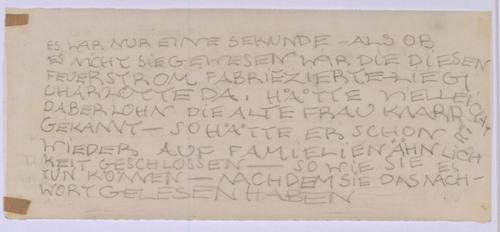 ES WAR NUR EINE SEKUNDE – ALS OB
ES NICHT SIE GEWESEN WAR DIE DIESEN
FEUERSTROM FABRIEZIERTE – LIEGT
CHARLOTTE DA. HÄTTE VIELLEICHT
DABERLOHN DIE ALTE FRAU KNARRE
GEKANNT – SO HÄTTE ER SCHON
WIEDER AUF FAMIELIENÄHNLICH
KEIT GESCHLOSSEN – SO WIE SIE ES
TUN KÖNNEN – NACHDEM SIE DAS NACH-
WORT GELESEN HABEN